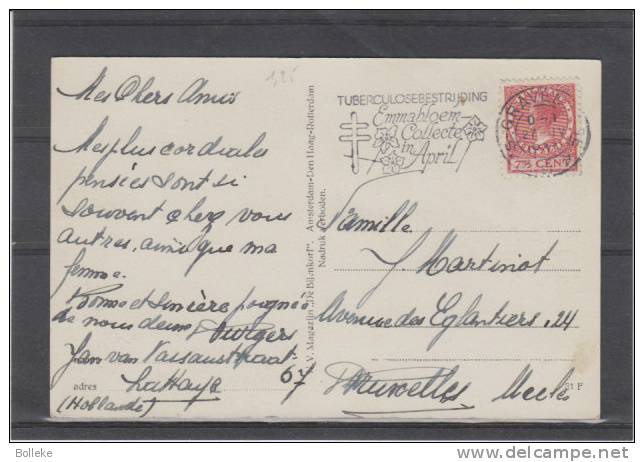 1,25
Mes Chers Amis
Mes plus cordiales
pensées sont si
souvent chez vous
autres, ainsi que ma
femme.
Bonne et sincère poignée
de nous deux,
Jan van Nassaustraat
67
La Haye
(Hollande)
adres
N.V. Magazijn "De Bijenkorf", Amsterdam-Den Haag-Rotterdam
Nadruk verboden.
TUBERCULOSEBESTRIJDING
Emmabloem
Collecte
in
April
'S-GRAVENHAGE
7½ CENT
Famille
J. Martinot
Avenue des Eglantiers, 24
Bruxelles Uccle
21 F
Bolleke